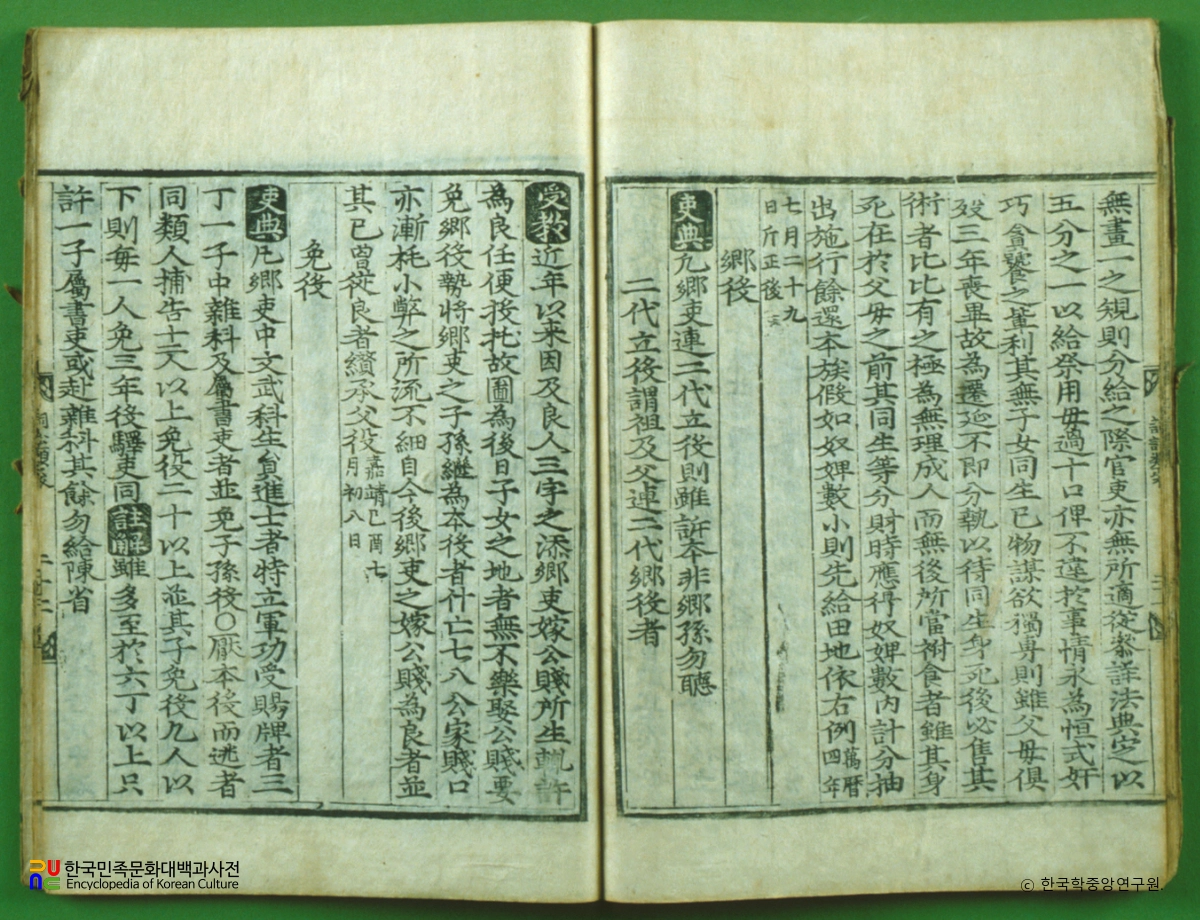 無畫一之規則分給之際官吏亦無所適從叅詳法典定以
五分之一以給祭用毋過十口俾不違於事情永爲恒式奸
巧貪饕之輩利其無子女同生已物謀欲獨專則雖父母俱
歿三年喪畢故爲遷延不即分執以待同生身死後必售其
術者比比有之極爲無理成人而無後所當祔食者雖其身
死在於父母之前其同生等分財時應得奴婢數內計分抽
出施行餘還本族假如奴婢數小則先給田地依右例萬曆四年
七月二十九日
鄕役
吏典凡鄕吏連二代立役則雖訴本非鄕孫勿聽
二代立役謂祖及父連二代鄕役者
受敎近年以來因及良人三字之添鄕吏嫁公賤所生輒許
爲良任便投托故圖爲後日子女之地者無不樂娶公賤要
免鄕役勢將鄕吏之子孫繼爲本役者什亡七八公家賤口
亦漸耗小弊之所流不細自今後鄕吏之嫁公賤爲良者並
其已曾從良者纘承父役嘉靖己酉七月初八日
免役
吏典凡鄕吏中文武科生員進士者特立軍功受賜牌者三
丁一子中雜科及屬書吏者並免子孫役○厭本役而逃者
同類人捕告十人以上免役二十以上並其子免役九人以
下則每一人免三年役驛吏同註解雖多至於六丁以上只
許一子屬書吏或赴雜科其餘勿給陳省
한국민족문화대백과사전
Encyclopedia of Korean Culture
© 한국학중앙연구원